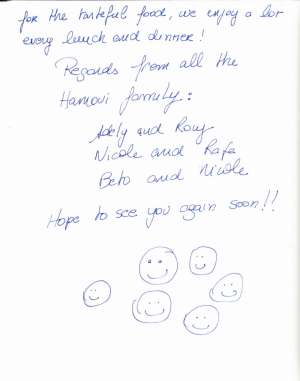 for the tasteful food, we enjoy a lot
every lunch and dinner!
Regards from all the
Hamoui family:
Adely and Rony
Nicole and Rafa
Beto and Nicole
Hope to see you again soon!!